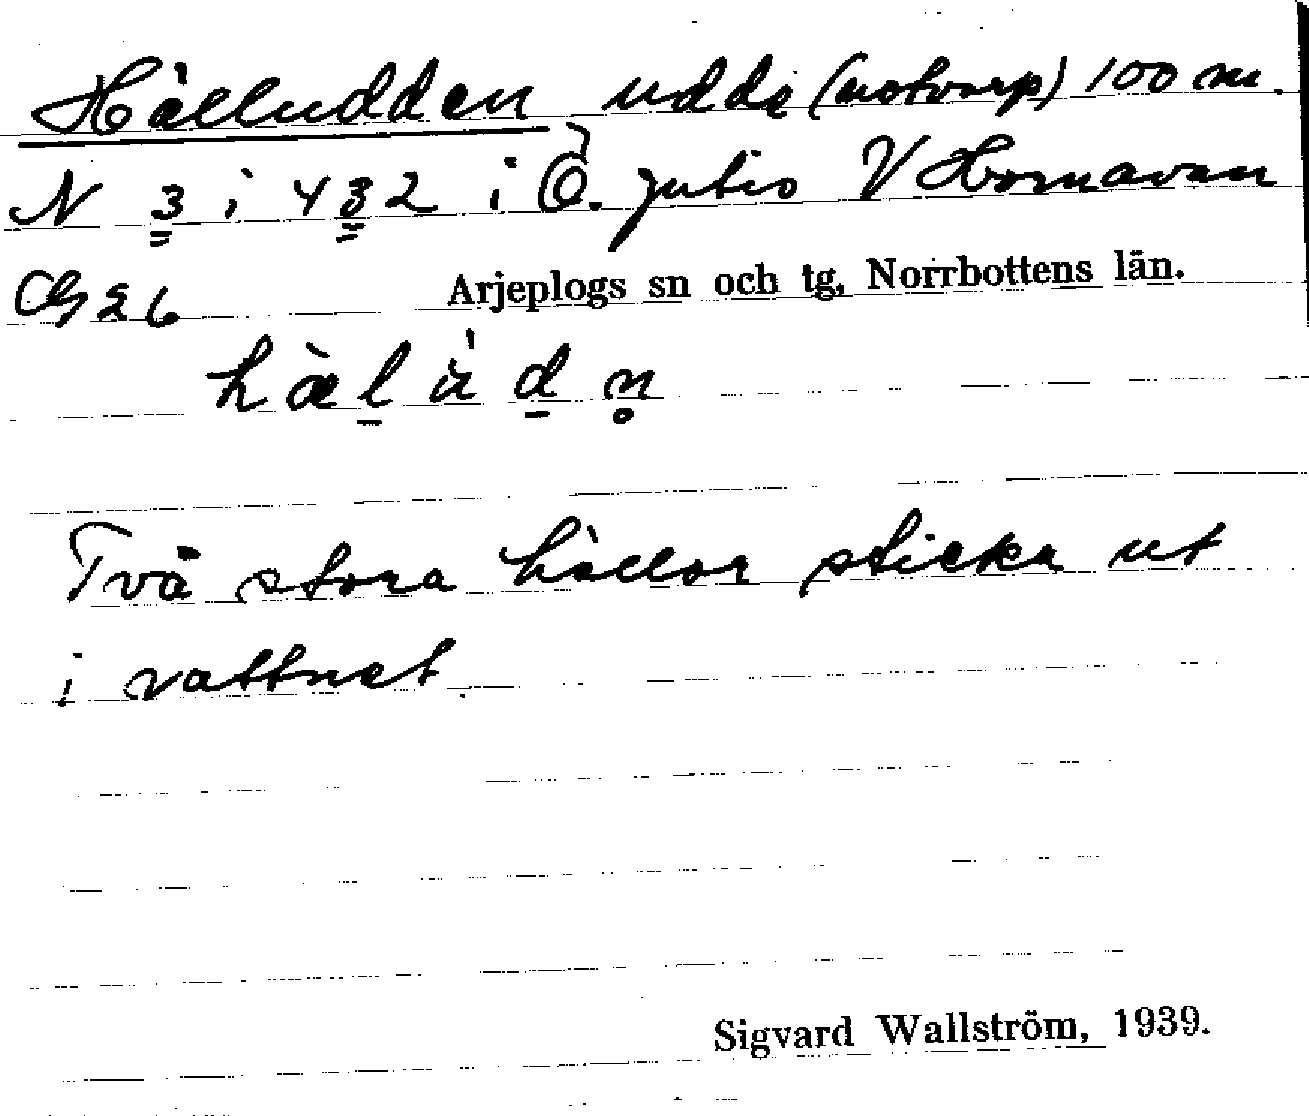 Hälludden udde (notvarp) 100 m.
N 3 i 432 i Ö. Jutis V Hornavan
CG26 Arjeplogs sn och tg, Norrbottens län.
hæ̀lùdn̥
Två stora hällor sticka ut
i vattnet.
Sigvard Wallström, 1939.